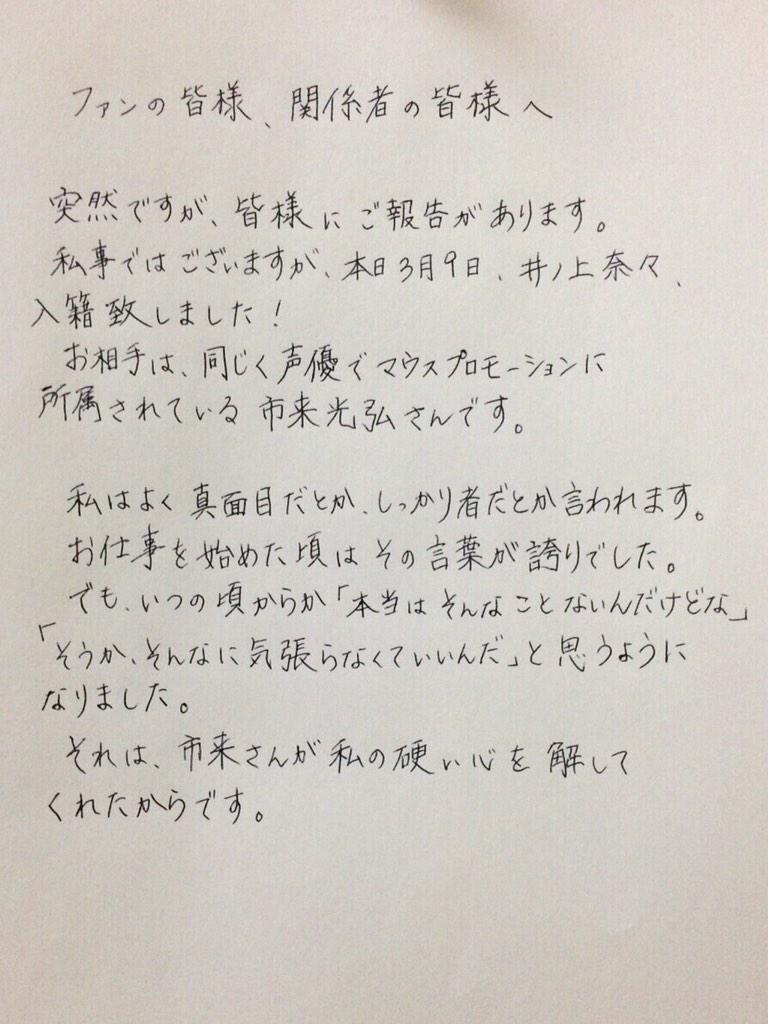 ファンの皆様、関係者の皆様へ
突然ですが、皆様にご報告があります。
私事ではございますが、本日3月9日、井ノ上奈々、
入籍致しました!
お相手は、同じく声優でマウスプロモーションに
所属されている市来光弘さんです。
私はよく真面目だとか、しっかり者だとか言われます。
お仕事を始めた頃はその言葉が誇りでした。
でも、いつの頃からか「本当はそんなことないんだけどな」
「そうか、そんなに気張らなくていいんだ」と思うように
なりました。
それは、市来さんが私の硬い心を解して
くれたからです。